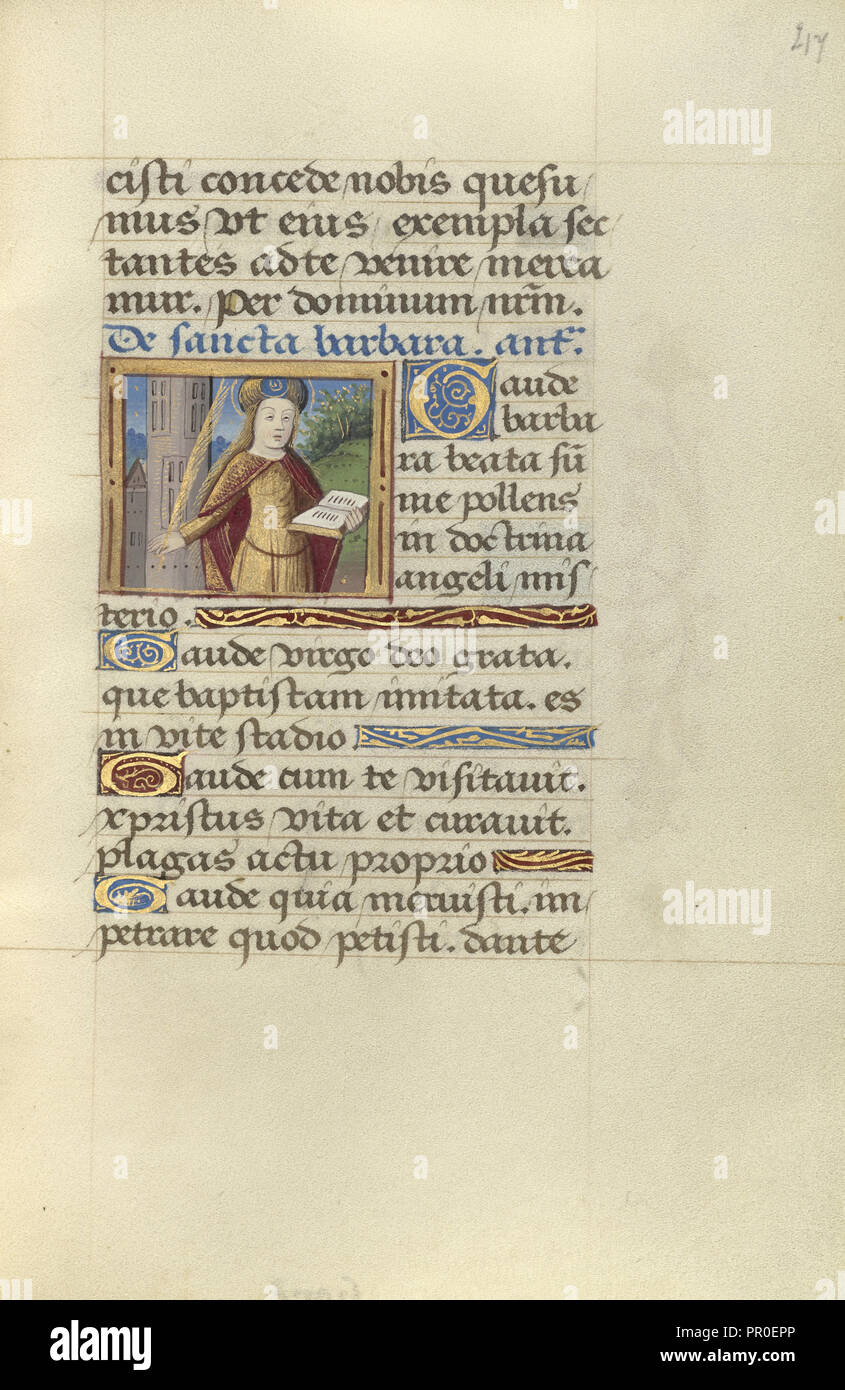 217
cisti concede nobis quesu
mus vt eius exempla sec
tantes ad te venire merea
mur. Per dominum nr̄m.
De sancta barbara. ant̄.
Gaude
barba
ra beata sū
me pollens
in doctrina
angeli mis
terio.
Gaude virgo deo grata.
que baptistam imitata. es
in vite stadio
Gaude cum te visitauit.
xpristus vita et curauit.
plagas actu proprio
Gaude quia meruisti. im
petrare quod petisti. dante
alamy
Image ID: PR0EPP
www.alamy.com